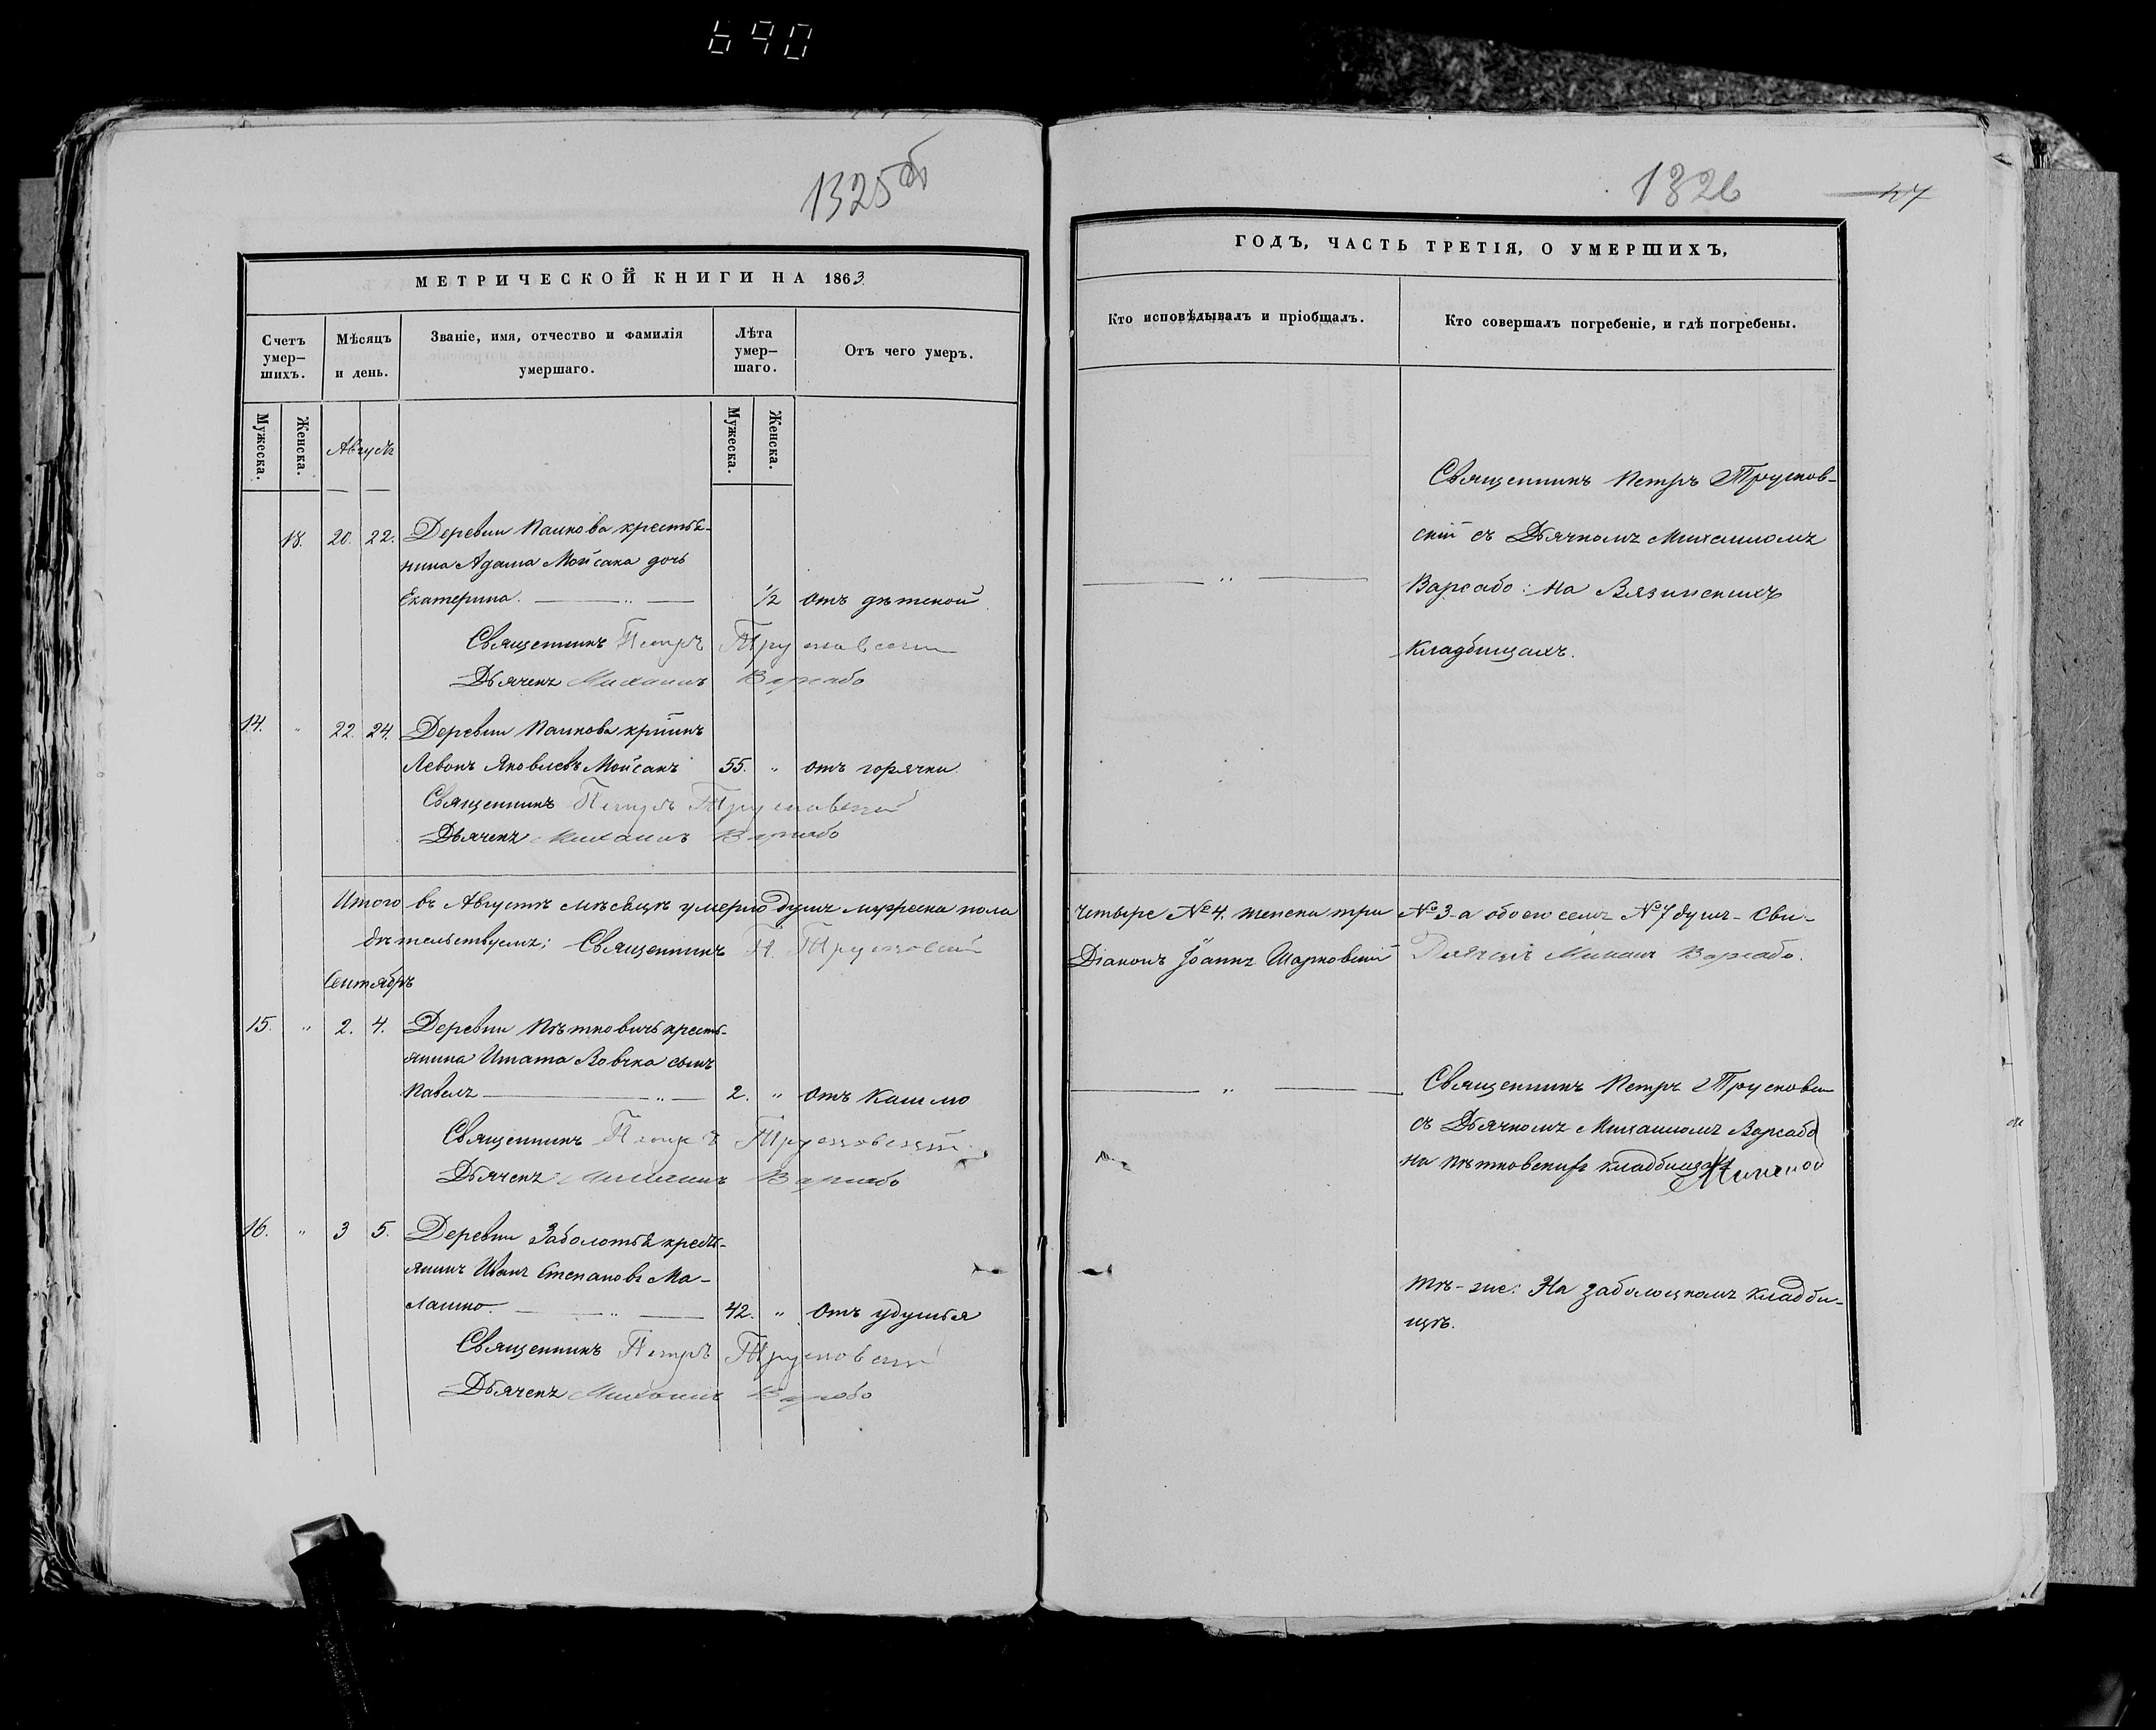 690
1325об
МЕТРИЧЕСКОЙ КНИГИ НА 1863
Счетъ умер— шихъ.
Мѣсяцъ и день.
Званіе, имя, отчество и фамилія умершаго.
Лѣта умер— шаго.
Отъ чего умеръ.
Мужеска.
Женска.
Августъ
Мужеска.
Женска.
18. 20. 22. Деревни Палкова крестья-
нина Адама Мойсака дочь
Екатерина. 1/2 отъ дѣтской
Священникъ Петръ Трусковскій
Дьячекъ Михаилъ Варсабо
14. " 22. 24. Деревни Палкова кр-нинъ
Левонъ Яковлевъ Мойсакъ 55. " отъ горячки.
Священникъ Петръ Трусковскій
Дьячекъ Михаилъ Варсабо
Итого въ Августѣ мѣсяцѣ умерло душъ мужеска пола
дѣтельствуемъ: Священникъ П. Трусковскій
Сентябрь
15. " 2. 4. Деревни Пѣтковичъ кресть-
янина Игната Вовчка сынъ
Павелъ 2. " отъ кашлю
Священникъ Петръ Трусковскій
Дьячекъ Михаилъ Варсабо
16. " 3 5. Деревни Заболотья кресть-
янинъ Иванъ Степановъ Ма-
лашко. 42. " Отъ удушья
Священникъ Петръ Трусковскій
Дьячекъ Михаилъ Варсабо
1326
ГОДЪ, ЧАСТЬ ТРЕТІЯ, О УМЕРШИХЪ,
Кто исповѣдывалъ и пріобщалъ.
Кто совершалъ погребеніе, и гдѣ погребены.
Священникъ Петръ Трусков-
скій съ Дьячкомъ Михаиломъ
Варсабо: на Вязинскихъ
кладбищахъ.
четыре №4. женска три №3-а обоего семь №7 душъ - Сви-
Діаконъ Іоаннъ Шарковскій Дьячекъ Михаилъ Варсабо.
Священникъ Петръ Трускови
съ Дьячкомъ Михаиломъ Варсабо
на Пѣтковскихъ кладбищахъ
тѣ-же: На заболоцкомъ кладби-
щѣ.